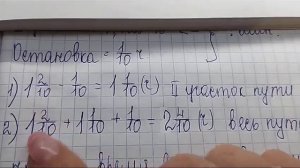 Остановка = 1/10 ч
1) 1 2/10 - 1/10 = 1 1/10 (ч) II участок пути
2) 1 2/10 + 1 1/10 + 1/10 = 2 4/10 (ч) весь путь